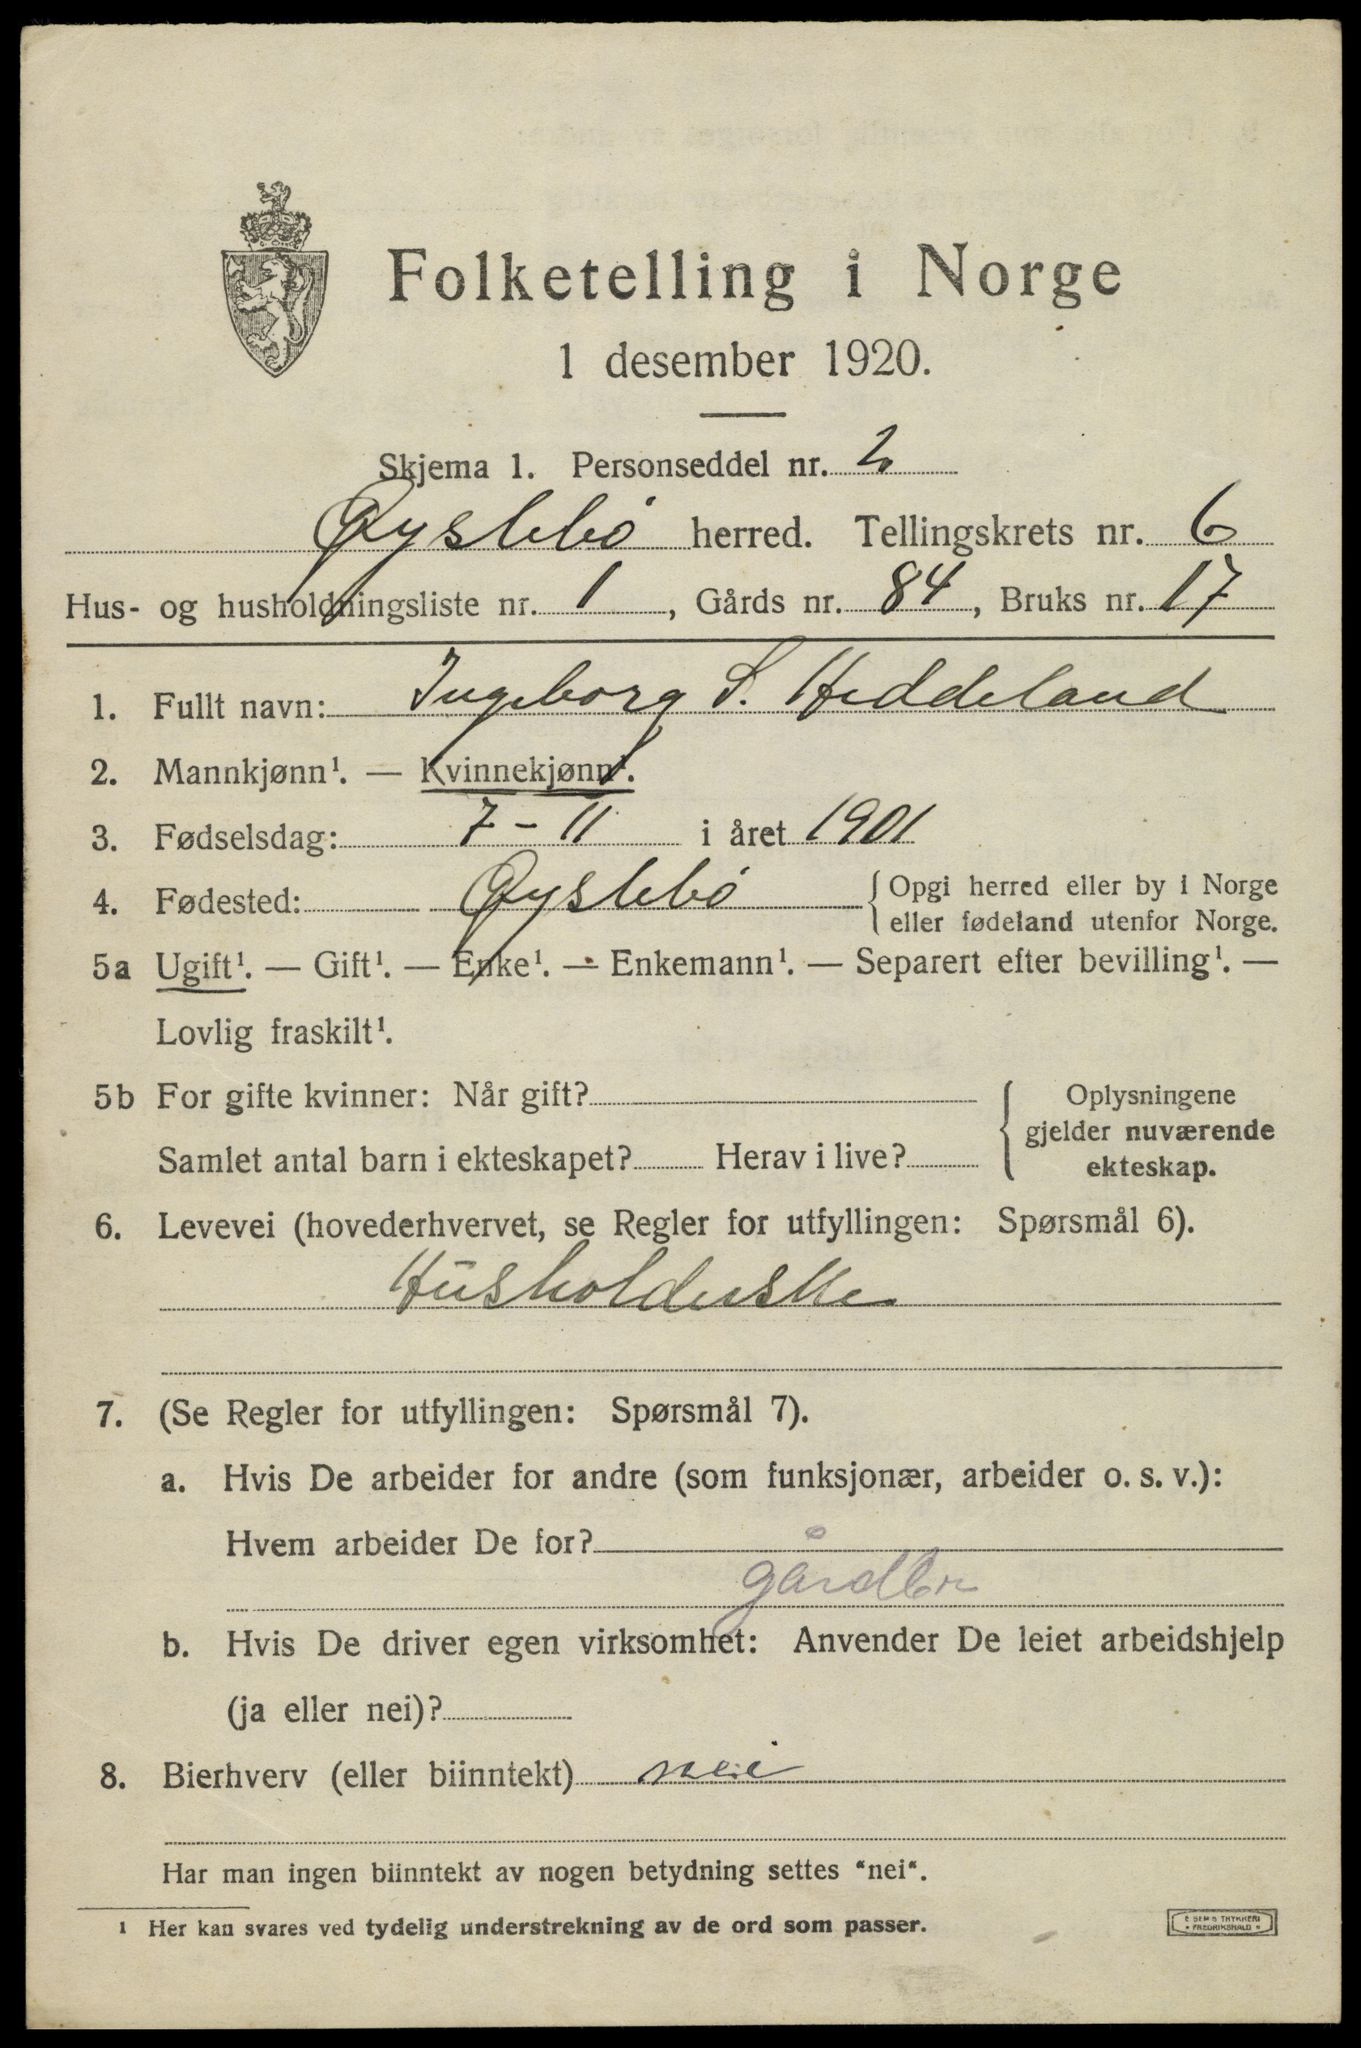 Folketelling i Norge
1 desember 1920.
Skjema 1. Personseddel nr. 2
Øyslebö herred. Tellingskrets nr. 6
Hus- og husholdningsliste nr. 1, Gårds nr. 84, Bruks nr. 17
1. Fullt navn: Ingeborg S. Heddeland
2. Mannkjønn¹. — Kvinnekjønn¹.
3. Fødselsdag: 7 - 11 i året 1901
4. Fødested: Øyslebö { Opgi herred eller by i Norge
eller fødeland utenfor Norge.
5a Ugift¹. — Gift¹. — Enke¹. — Enkemann¹. — Separert efter bevilling¹. —
Lovlig fraskilt¹.
5b For gifte kvinner: Når gift? { Oplysningene
gjelder nuværende
Samlet antal barn i ekteskapet? Herav i live?
ekteskap.
6. Levevei (hovederhvervet, se Regler for utfyllingen: Spørsmål 6).
Husholderske
7. (Se Regler for utfyllingen: Spørsmål 7).
a. Hvis De arbeider for andre (som funksjonær, arbeider o. s. v.):
Hvem arbeider De for?
gårdbr
b. Hvis De driver egen virksomhet: Anvender De leiet arbeidshjelp
(ja eller nei)?
8. Bierhverv (eller biinntekt) nei
Har man ingen biinntekt av nogen betydning settes “nei“.
¹ Her kan svares ved tydelig understrekning av de ord som passer.
E SEM S TRYKKERI
FREDRIKSHALD